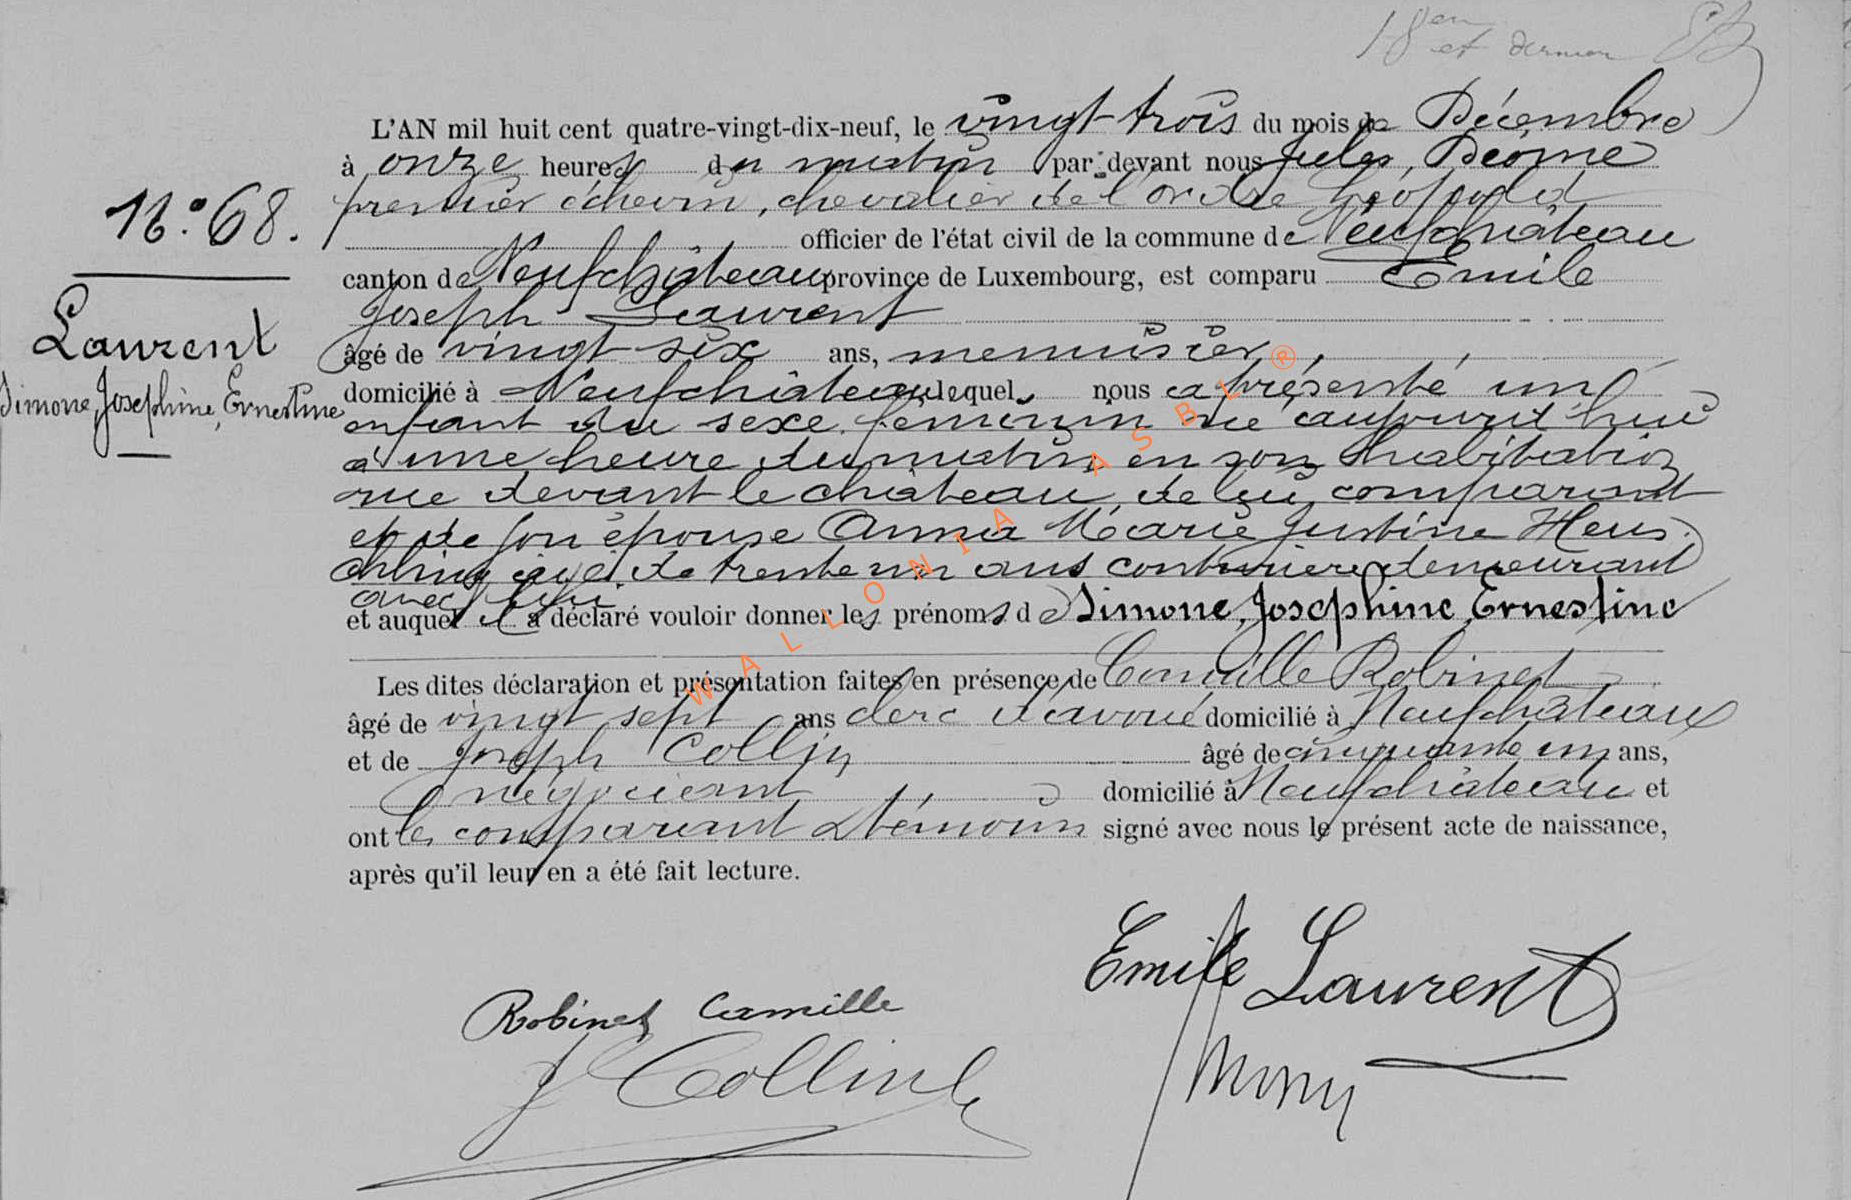 18en
et dernier
L'AN mil huit cent quatre-vingt-dix-neuf, le vingt trois du mois de Décembre
à onze heures du matin par-devant nous Jules, Déome
premier échevin, chevalier de l'ordre Léopold
N° 68.
officier de l'état civil de la commune de Neufchâteau
canton de Neufchâteau province de Luxembourg, est comparu Emile
Joseph Laurent
Laurent
Simone, Joséphine, Ernestine
âgé de vingt six ans, menuisier,
domicilié à Neufchâteau lequel nous a présenté un
enfant du sexe féminin né aujourd'hui
à une heure du matin en son habitation
rue devant le château, de lui comparant
et de son épouse Anna Marie Justine Heus
chling âgée de trente un ans couturière demeurant
avec lui
et auquel il a déclaré vouloir donner les prénoms de Simone, Joséphine, Ernestine
Les dites déclaration et présentation faites en présence de Camille Robinet
âgé de vingt sept ans clerc d'avoué domicilié à Neufchâteau
et de Joseph Collin âgé de cinquante un ans,
négociant domicilié à Neufchâteau et
ont les comparant & témoins signé avec nous le présent acte de naissance,
après qu'il leur en a été fait lecture.
Emile Laurent
Robinet Camille
J Collin
WALLONIA ASBL ®